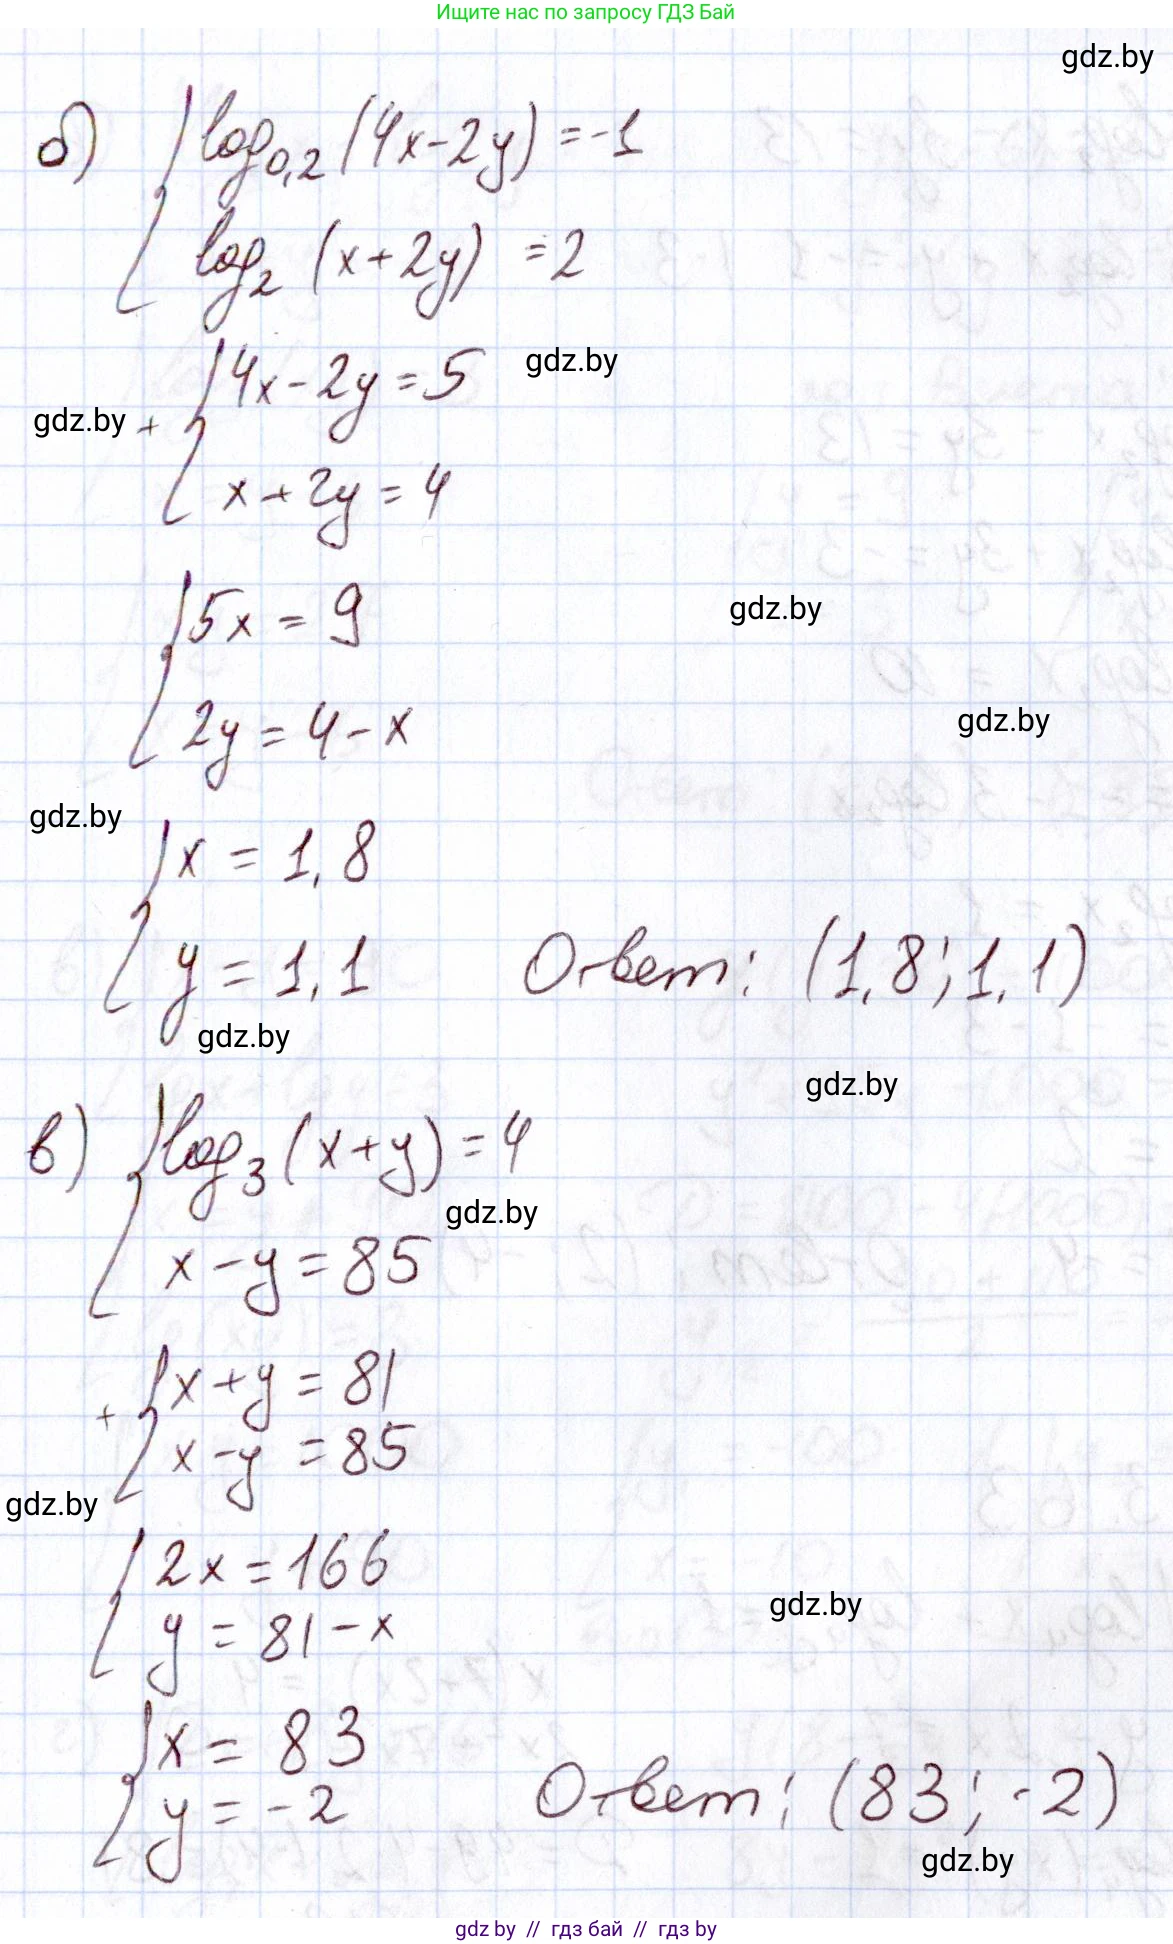 Ищите нас по запросу ГДЗ Бай
gdz.by
б) { log₀,₂ (4x-2y) = -1
log₂ (x+2y) = 2
gdz.by
gdz.by
+ { 4x-2y = 5
x+2y = 4
{ 5x = 9
gdz.by
2y = 4-x
gdz.by
gdz.by
{ x = 1,8
y = 1,1 Ответ: (1,8; 1,1)
gdz.by
gdz.by
в) { log₃ (x+y) = 4
gdz.by
x-y = 85
+ { x+y = 81
x-y = 85
gdz.by
{ 2x = 166
gdz.by
y = 81-x
{ x = 83
y = -2 Ответ: (83; -2)
gdz.by
gdz.by // гдз бай // гдз by